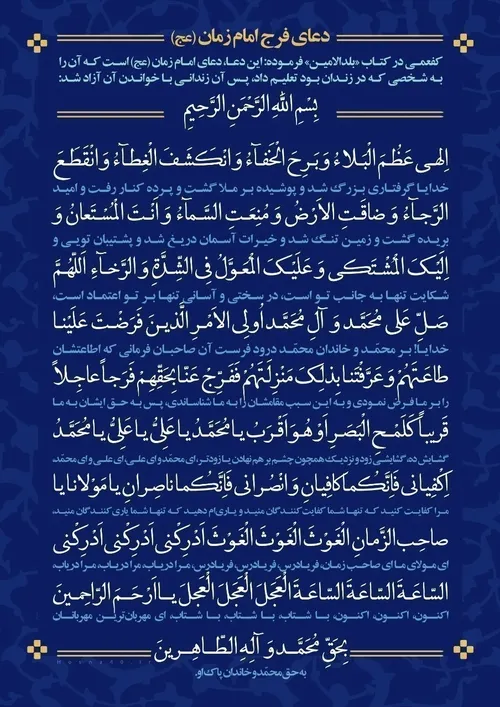 دعای فرج امام زمان (عج)
کفعمی در کتاب «بلدالامین» فرموده: این دعا، دعای امام زمان (عج) است که آن را
به شخصی که در زندان بود تعلیم داد، پس آن زندانی با خواندن آن آزاد شد:
بِسْمِ اللهِ الرَّحْمنِ الرَّحِيمِ
اِلهى عَظُمَ الْبَلاءُ وَ بَرِحَ الْخَفآءُ وَ انْكَشَفَ الْغِطآءُ وَ انْقَطَعَ
خدایا گرفتاری بزرگ شد و پوشیده بر ملا گشت و پرده کنار رفت و امید
الرَّجآءُ وَ ضاقَتِ الاَرْضُ وَ مُنِعَتِ السَّمآءُ وَ اَنْتَ الْمُسْتَعانُ وَ
بریده گشت و زمین تنگ شد و خیرات آسمان دریغ شد و پشتیبان تویی و
اِلَيْكَ الْمُشْتَكى وَ عَلَيْكَ الْمُعَوَّلُ فِى الشِّدَّةِ وَ الرَّخآءِ اَللّهُمَّ
شکایت تنها به جانب تو است، در سختی و آسانی تنها بر تو اعتماد است،
صَلِّ عَلى مُحَمَّد وَ آلِ مُحَمَّد اُولِى الاَمْرِ الَّذينَ فَرَضْتَ عَلَيْنا
خدایا! بر محمّد و خاندان محمّد درود فرست آن صاحبان فرمانی که اطاعتشان
طاعَتَهُمْ وَ عَرَّفْتَنا بِذلِكَ مَنْزِلَتَهُمْ فَفَرِّجْ عَنّا بِحَقِّهِمْ فَرَجاً عاجِلاً
را بر ما فرض نمودی و به این سبب مقامشان را به ما شناساندی، پس به حق ایشان به ما
قَريباً كَلَمْحِ الْبَصَرِ اَوْ هُوَ اَقْرَبُ يا مُحَمَّدُ يا عَلِىُّ يا عَلِىُّ يا مُحَمَّدُ
گشایش ده، گشایشی زود و نزدیک همچون چشم بر هم نهادن یا زودتر، ای محمّد و ای علی، ای علی و ای محمّد،
اِكْفِيانى فَاِنَّكُما كافِيانِ وَ انْصُرانى فَاِنَّكُما ناصِرانِ يا مَوْلانا يا
مرا کفایت کنید که تنها شما کفایت کنندگان منید و یاری‌ام دهید که تنها شما یاری کنندگان منید،
صاحِبَ الزَّمانِ الْغَوْثَ الْغَوْثَ الْغَوْثَ اَدْرِكْنى اَدْرِكْنى اَدْرِكْنى
ای مولای ما ای صاحب زمان، فریادرس، فریادرس، فریادرس، مرا دریاب، مرا دریاب، مرا دریاب،
السّاعَةَ السّاعَةَ السّاعَةَ الْعَجَلَ الْعَجَلَ الْعَجَلَ يا اَرْحَمَ الرّاحِمينَ
اکنون، اکنون، اکنون، با شتاب، با شتاب، با شتاب، ای مهربان‌ترین مهربانان
بِحَقِّ مُحَمَّد وَ آلِهِ الطّاهِرينَ
به حق محمّد و خاندان پاک او.